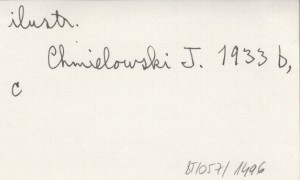 ilustr.
Chmielowski J. 1933 b,
c
/1496